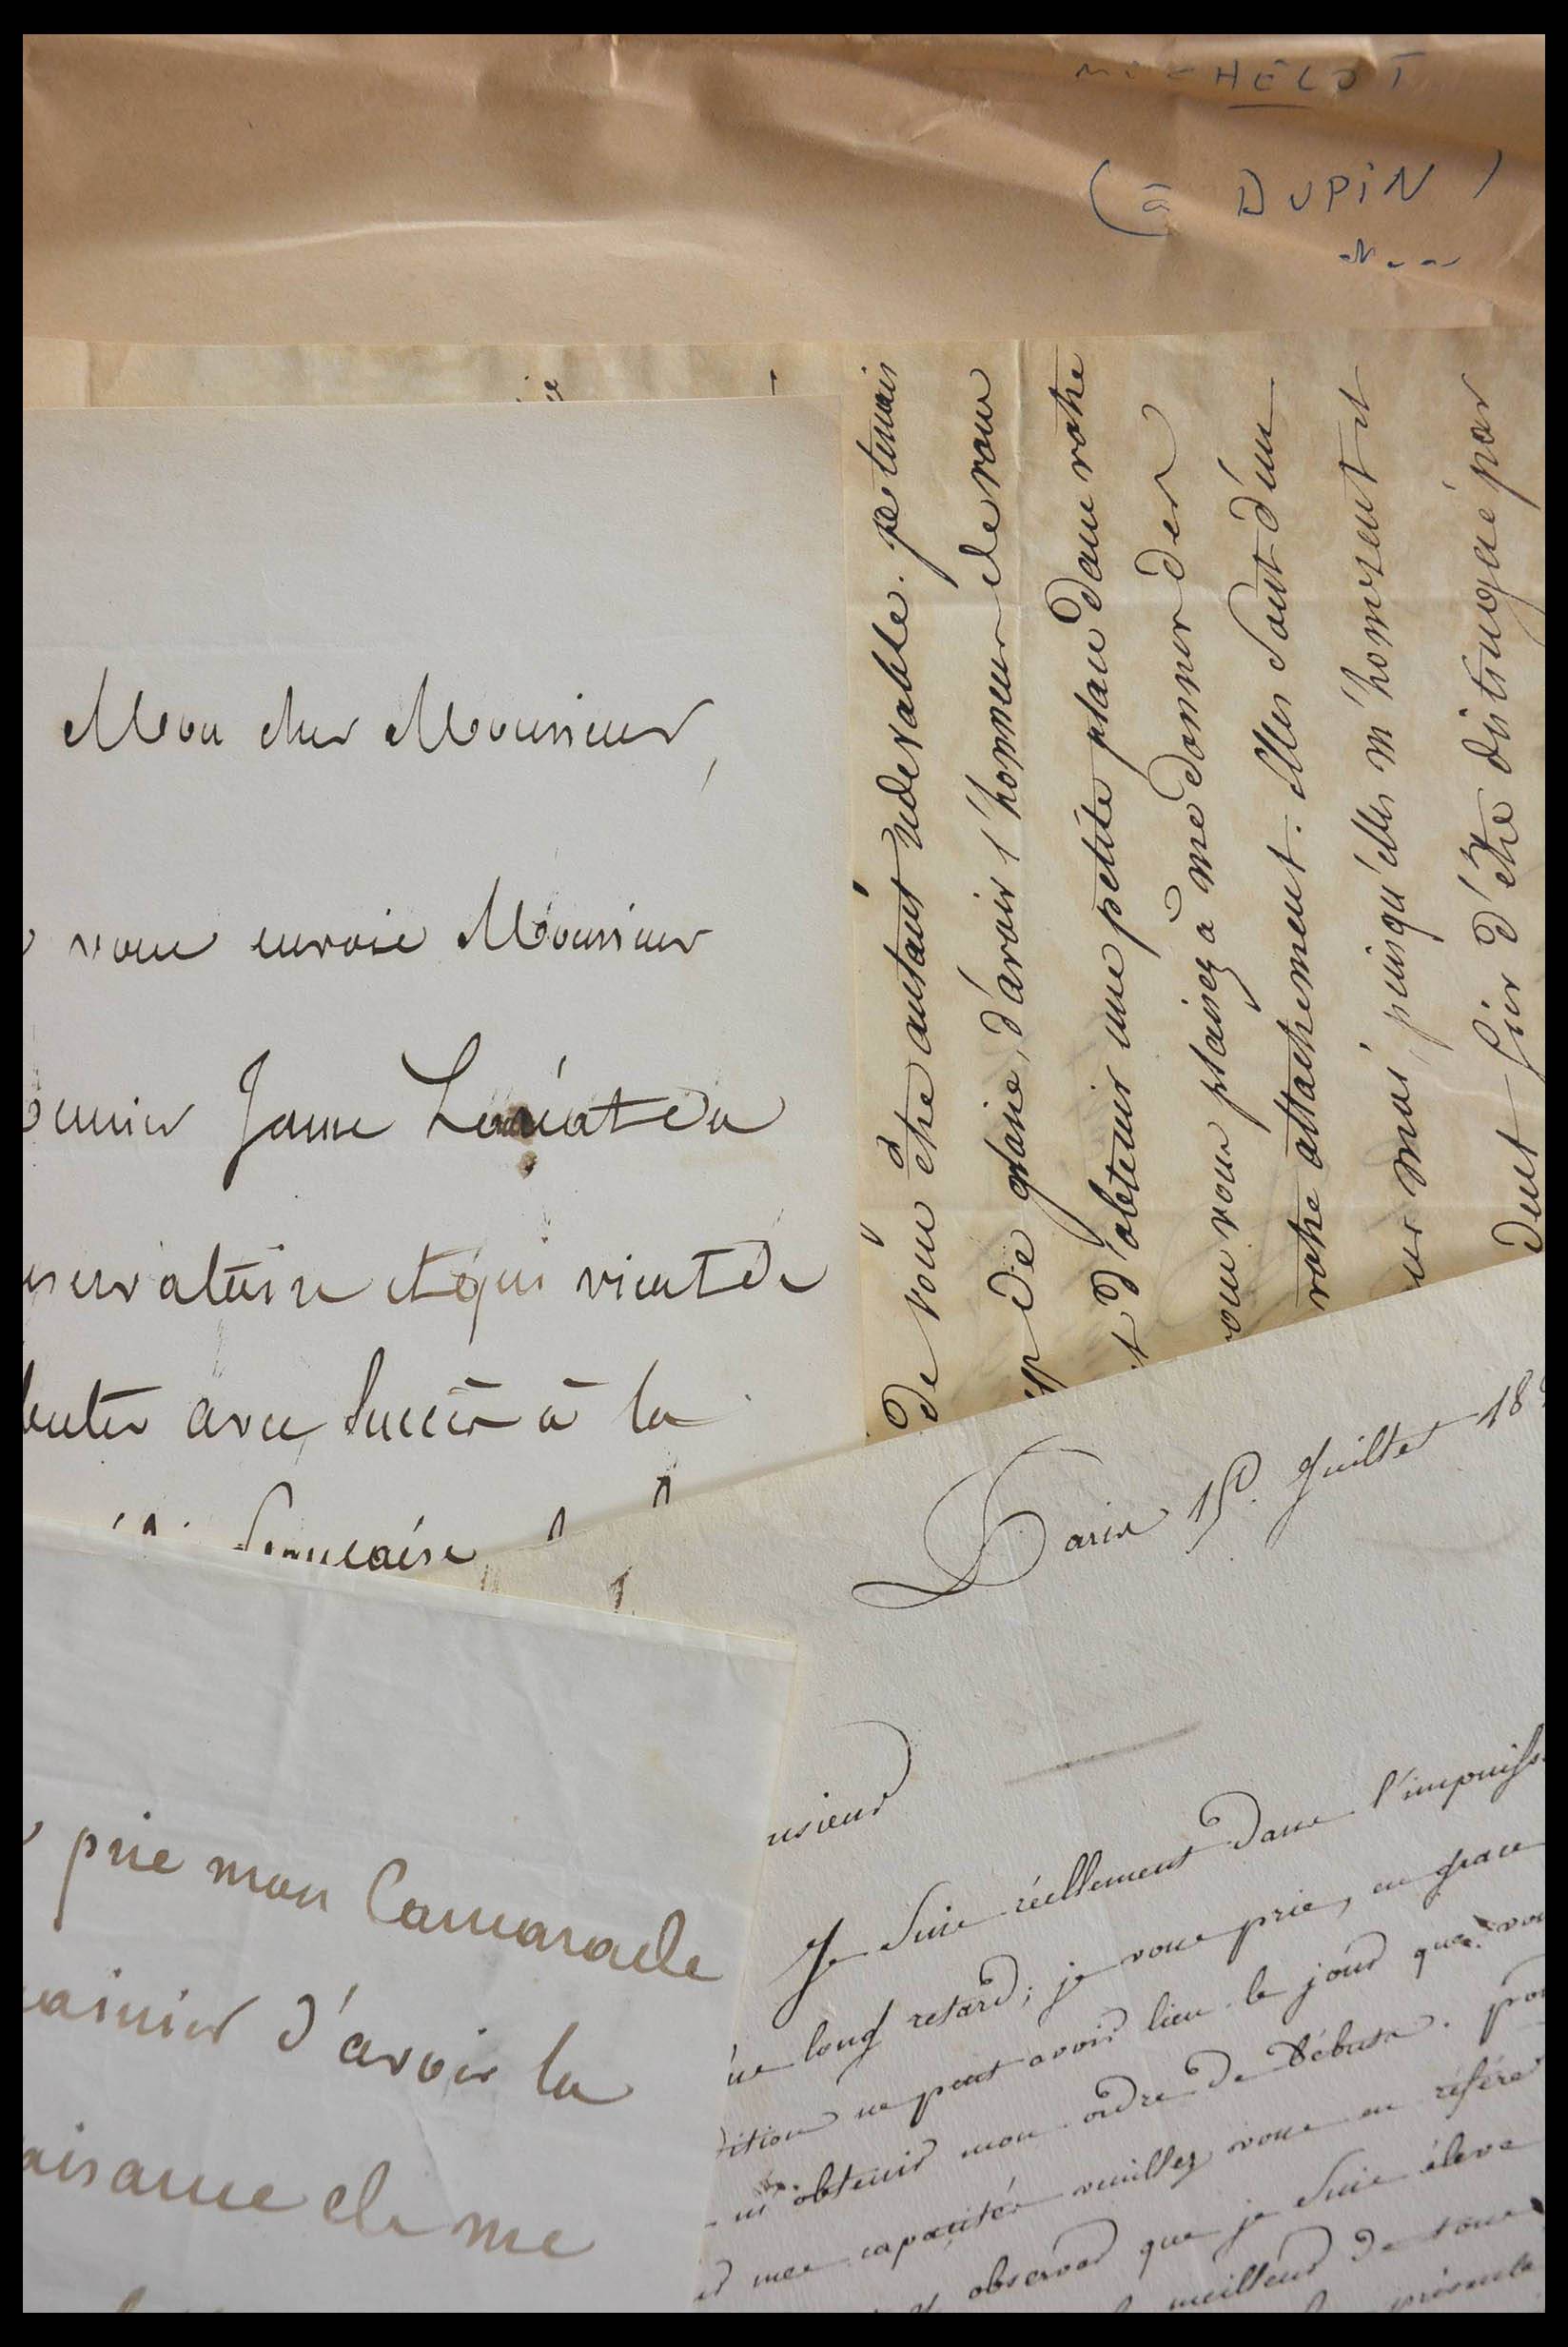 MICHELOT
(à DUPIN)
Mon cher Monsieur,
vous envoie Monsieur
Jame Lauréat du
servatoire et qui vient de
buter avec succès à la
française
De vous être autant redevable. je tenais
de gloire, d'avoir l'honneur de vous
et d'obtenir une petite place dans votre
vous vous plaisez à me donner des
votre attachement. Elles sont d'un
moi, puisqu'elles m'honorent et
dut fier d'être distingué par
Paris 15. Juillet 18
nsieur
Je suis réellement dans l'impuiss
ue long retard; je vous prie, en grace
dition ne peut avoir lieu le jour que vou
m'obtenir mon ordre de débuts. pou
mes capacités veuillez vous en référer
observer que je suis élève
meilleur de tous
présente
prie mon Camarade
d'avoir la
aisance de me